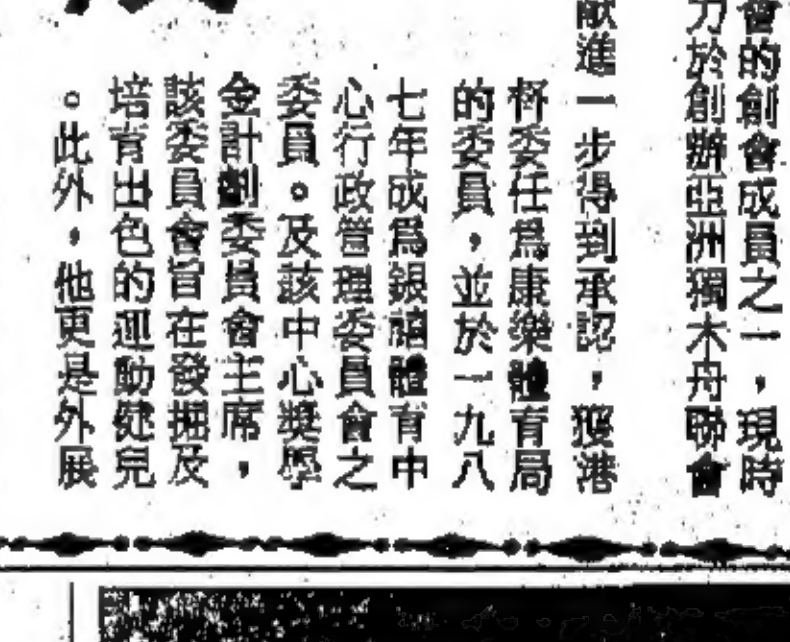 會的創會成員之一，現時
力於創辦亞洲獨木舟聯會
獻進一步得到承認，獲港
督委任爲康樂體育局
的委員，並於一九八
七年成爲銀禧體育中
心行政管理委員會之
委員。及該中心獎學
金計劃委員會主席，
該委員會旨在發掘及
培育出色的運動健兒
。此外，他更是外展